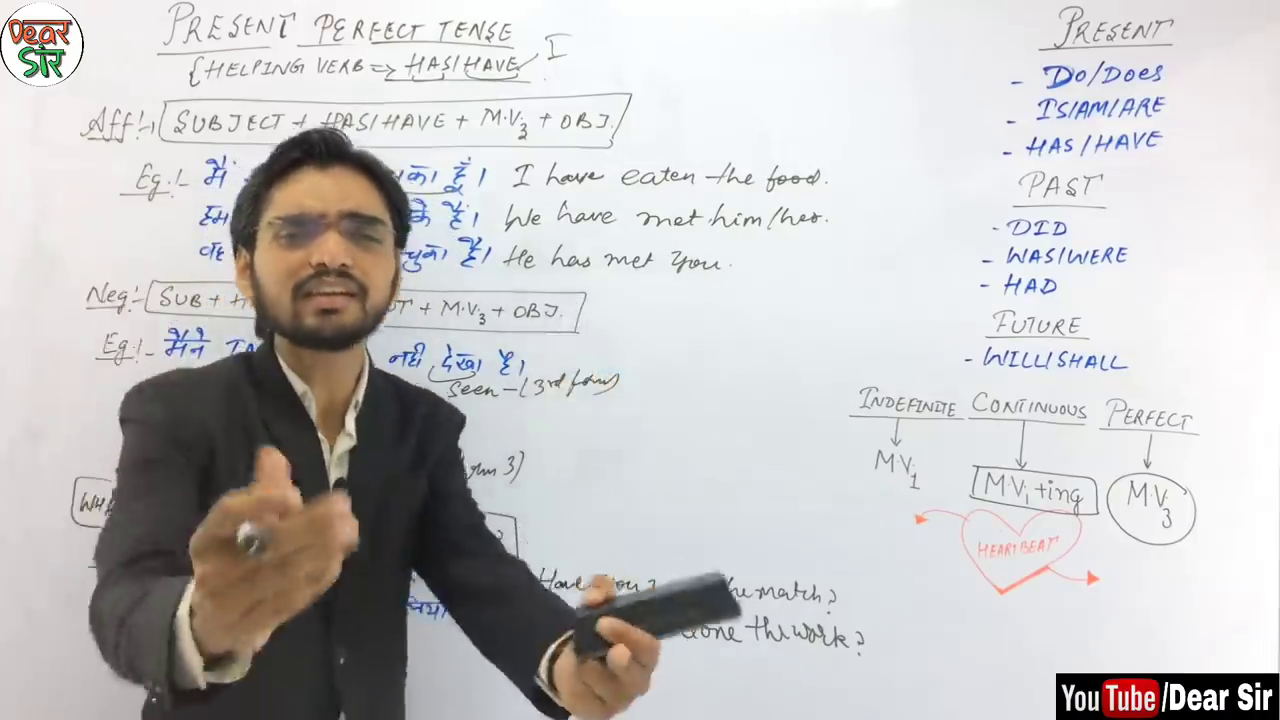 Dear
सर
PRESENT PERFECT TENSE
{HELPING VERB => HAS/HAVE I
Aff:→ SUBJECT + HAS/HAVE + M.V3 + OBJ.
Eg:- मैं का हूँ। I have eaten the food.
हम के हैं। We have met him/her.
वह चुका है। He has met you.
Neg:- SUB + + M.V3 + OBJ.
Eg:- मैंने नहीं देखा है।
Seen - (3rd form)
Have you the match?
done the work?
PRESENT
- DO/DOES
- IS/AM/ARE
- HAS/HAVE
PAST
- DID
- WAS/WERE
- HAD
FUTURE
- WILL/SHALL
INDEFINITE CONTINUOUS PERFECT
M.V1 M.V1+ing M.V3
HEARTBEAT
YouTube/Dear Sir